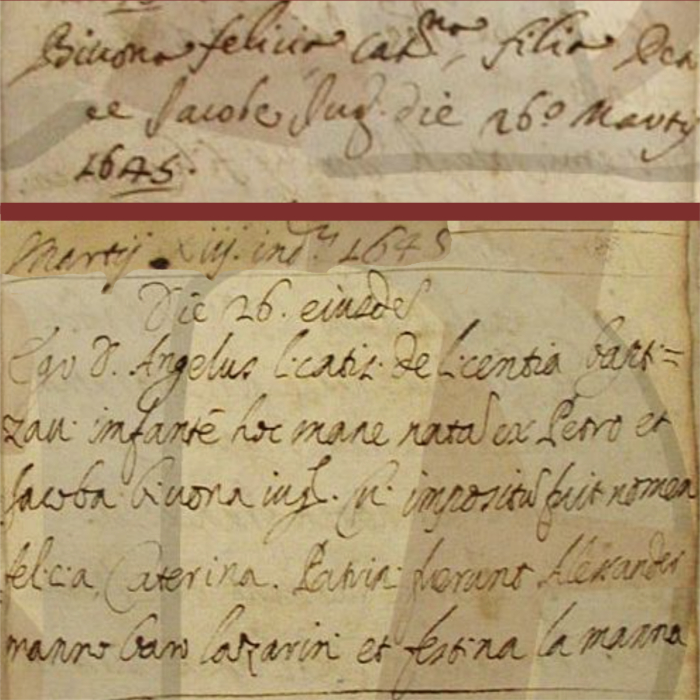 Bivona felicia cat.na filia Pet
et Jacobe Jug. die 26º Martij
1645.
Martij Xiij. ind.is 1645
Die 26. eiusdē
Ego D. Angelus de licentia bapti=
zavi infantē hoc mane natā ex Petro et
Jacoba Bivona iug. cui impositū fuit nomen
felicia Caterina. Patrini fuerunt Alexander
manno et la manna